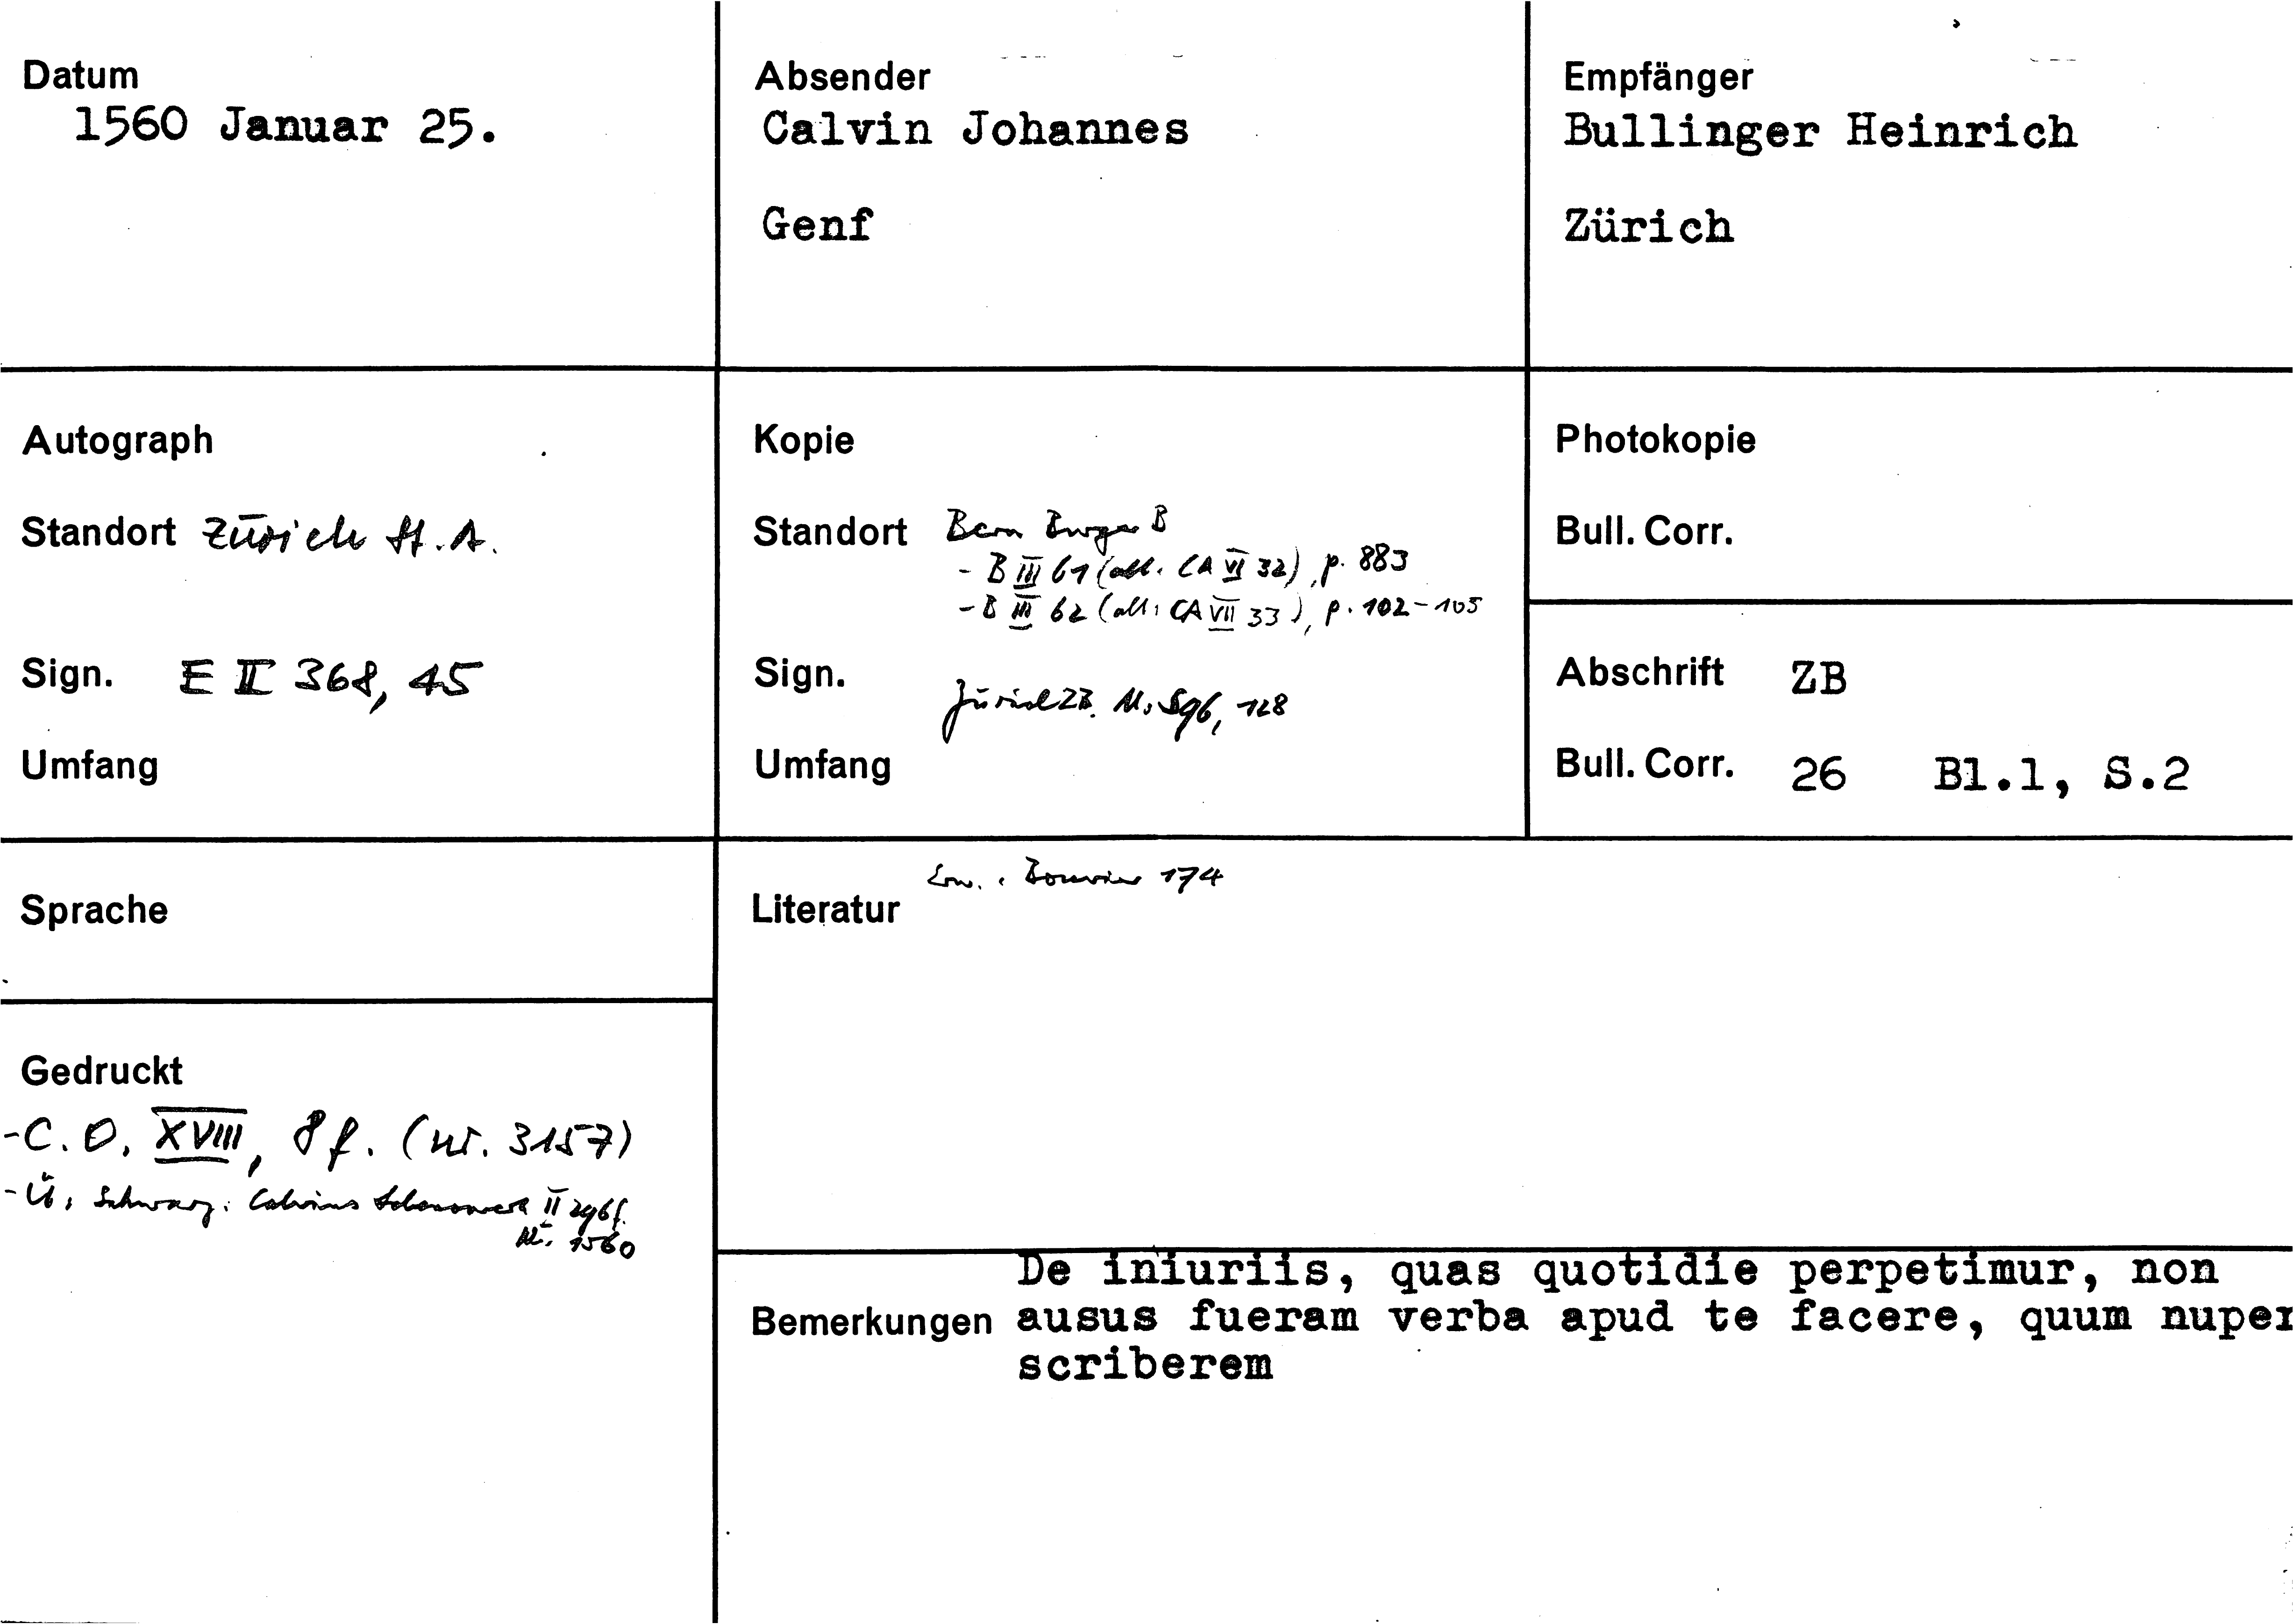 Datum
1560 Januar 25.
Absender
Calvin Johannes
Genf
Empfänger
Bullinger Heinrich
Zürich
Autograph
Standort Zürich St. A.
Sign. E II 368, 45
Umfang
Kopie
Standort Bern Burger B
- B III 61 (alt: CA VI 32), p. 883
- B III 62 (alt: CA VII 33), p. 102-105
Sign.
Zürich ZB. Ms S 96, 128
Umfang
Photokopie
Bull. Corr.
Abschrift ZB
Bull. Corr. 26 Bl.1, S.2
Sprache
Literatur
Erw.: Bouvier 174
Gedruckt
-C. O. XVIII, 8 f. (nr. 3157)
-Ü: Schwarz: Calvins Lebenswerk II 296f.
Nr. 1560
Bemerkungen
De iniuriis, quas quotidie perpetimur, non
ausus fueram verba apud te facere, quum nuper
scriberem